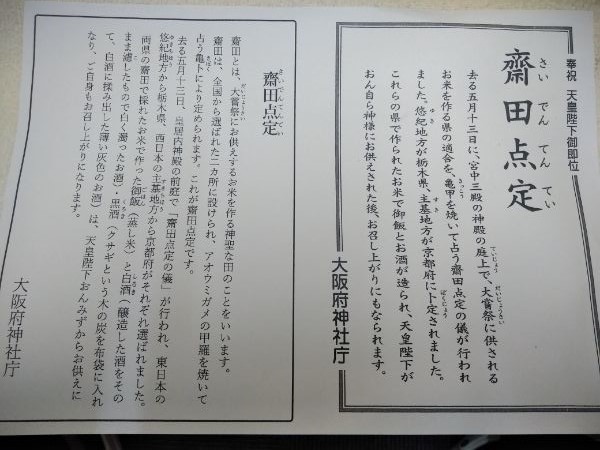 奉祝 天皇陛下御即位
齋田点定
さいでんてんてい
去る五月十三日に、宮中三殿の神殿の庭上で、大嘗祭に供される
ていじょう
だいじょうさい
お米を作る県の適合を、亀甲を焼いて占う齋田点定の儀が行われ
きっこう
ました。悠紀地方が栃木県、主基地方が京都府に卜定されました。
ゆき
すき
ぼくじょう
これらの県で作られたお米で御飯とお酒が造られ、天皇陛下が
おん自ら神様にお供えされた後、お召し上がりにもなられます。
大阪府神社庁
齋田点定
さいでんてんてい
齋田とは、大嘗祭にお供えするお米を作る神聖な田のことをいいます。
だいじょうさい
齋田は、全国から選ばれた二カ所に設けられ、アオウミガメの甲羅を焼いて
占う亀卜により定められます。これが齋田点定です。
きぼく
去る五月十三日、皇居内神殿の前庭で「齋田点定の儀」が行われ、東日本の
悠紀地方から栃木県、西日本の主基地方から京都府がそれぞれ選ばれました。
ゆきちほう
すきちほう
両県の齋田で採れたお米で作った御飯（蒸し米）と白酒（醸造した酒をその
ごはん
しろき
まま濾したもので白く濁ったお酒）・黒酒（クサギという木の炭を布袋に入れ
こ
くろき
て、白酒に揉み出した薄い灰色のお酒）は、天皇陛下おんみずからお供えに
なり、ご自身もお召し上がりになります。
大阪府神社庁